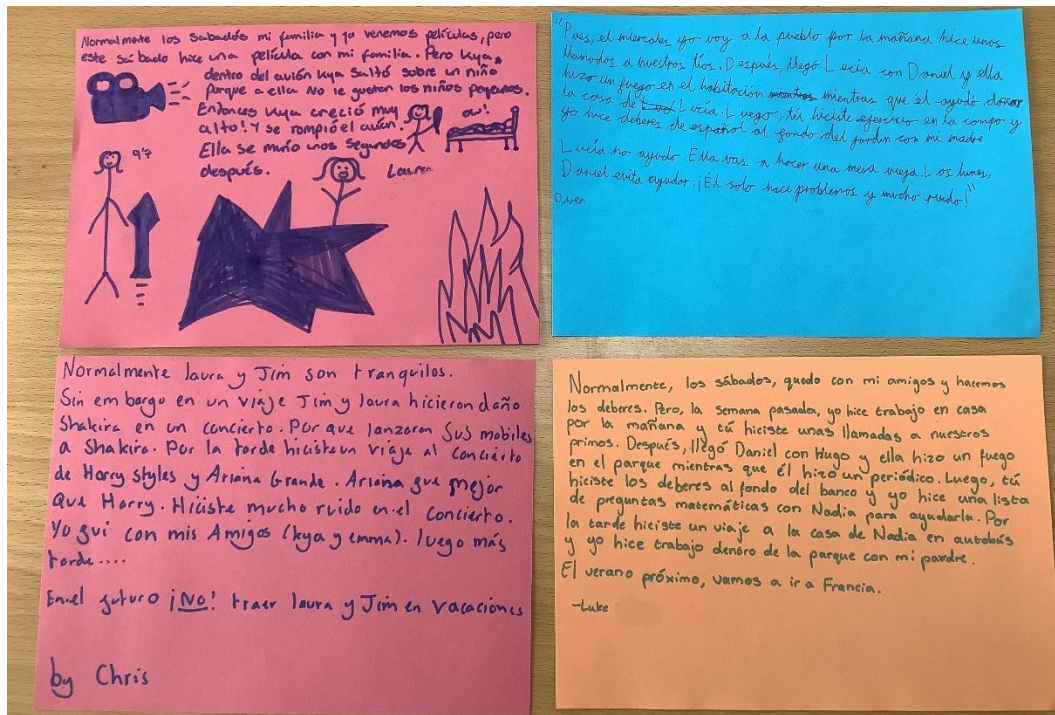 Normalmente los Sabados mi familia y yo venemos películas, pero
este sábado hice una película con mi familia. Pero Kya,
dentro del avión Kya Saltó sobre un niño
Porque a ella No le gustan los niños pequenos.
Entonces Kya creció muy
alto! Y se rompió el avión.
Ella se murio unos segundos
después.
ow!
9'7
Lauren
"Pues, el miercoles yo voy a la pueblo por la mañana hice unos
llamados a nuestros tíos. Después, llegó Lucía con Daniel y ella
hizo un fuego en el habitación mientras que él ayudó
la casa de Lucía. Luego, tú hiciste ejercicio en la campo y
yo hice deberes de español al fondo del jardín con mi madre
Lucía no ayudo. Ella vas a hacer una mesa vieja. Los lunes,
Daniel evita ayudar. ¡Él solo hace problemas y mucho ruido!"
Normalmente laura y Jim son tranquilos.
Sin embargo en un viaje Jim y laura hicieron daño
Shakira en un concierto. Por que lanzaron sus mobiles
a Shakira. Por la tarde hiciste un viaje al concierto
de Harry Styles y Ariana Grande. Ariana gue mejor
que Harry. Hiciste mucho ruido en el concierto.
Yo gui con mis Amigos (kya y emma). luego más
tarde....
En el guturo ¡No! traer laura y Jim en vacaciones
by Chris
Normalmente, los sábados, quedo con mi amigos y hacemos
los deberes. Pero, la semana pasada, yo hice trabajo en casa
por la mañana y tú hiciste unas llamadas a nuestros
primos. Después, llegó Daniel con Hugo y ella hizo un fuego
en el parque mientras que él hizo un periódico. Luego, tú
hiciste los deberes al fondo del banco y yo hice una lista
de preguntas matemáticas con Nadia para ayudarla. Por
la tarde hiciste un viaje a la casa de Nadia en autobús
y yo hice trabajo dentro de la parque con mi pavdre.
El verano próximo, vamos a ir a Francia.
-Luke